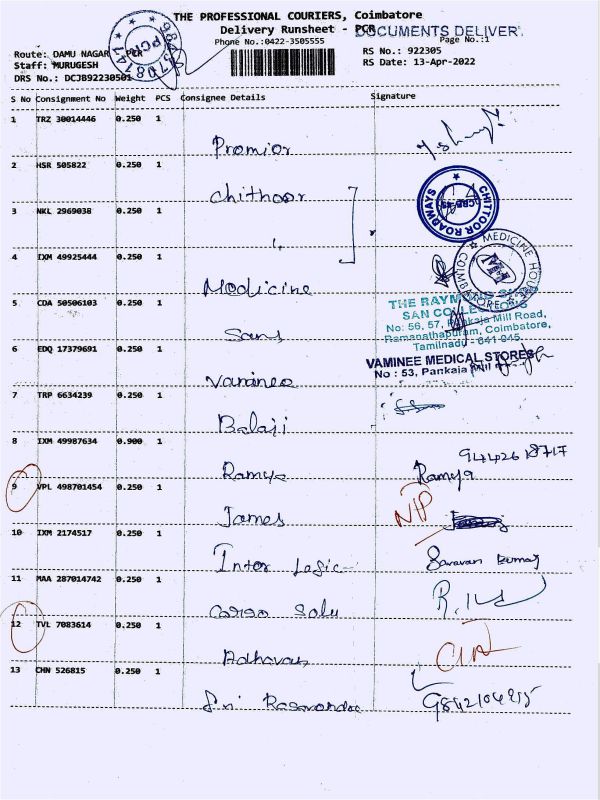 THE PROFESSIONAL COURIERS, Coimbatore
Delivery Runsheet - PCR
DOCUMENTS DELIVER
Phone No.:0422-3505555
Page No.:1
Route: DAMU NAGAR - PCR
RS No.: 922305
Staff: MURUGESH
RS Date: 13-Apr-2022
DRS No.: DCJB92230501
9843708747
PCR
S No Consignment No Weight PCS Consignee Details Signature
1 TRZ 30014446 0.250 1
Promior
2 HSR 505822 0.250 1
Chithoor
CHITTOOR ROADWAYS
CBE-45
3 NKL 2969038 0.250 1
4 IXM 49925444 0.250 1
Medicine
MEDICINE HOUSE
COIMBATORE
5 CDA 50506103 0.250 1
Sans
THE RAYMOND SHOP
SAN COLLECTIONS
No: 56, 57, Pankaja Mill Road,
Ramanathapuram, Coimbatore,
Tamilnadu - 641 045.
6 EDQ 17379691 0.250 1
Vaninee
VAMINEE MEDICAL STORES
No : 53, Pankaja Mill
7 TRP 6634239 0.250 1
Balaji
8 IXM 49987634 0.900 1
Ramya
94426 18717
Ramya
9 VPL 498701454 0.250 1
James
NP
10 IXM 2174517 0.250 1
Inter Logic
Saravan Kumar
11 MAA 287014742 0.250 1
Cargo Solu
12 TVL 7083614 0.250 1
Adhavan
13 CHN 526815 0.250 1
Sri